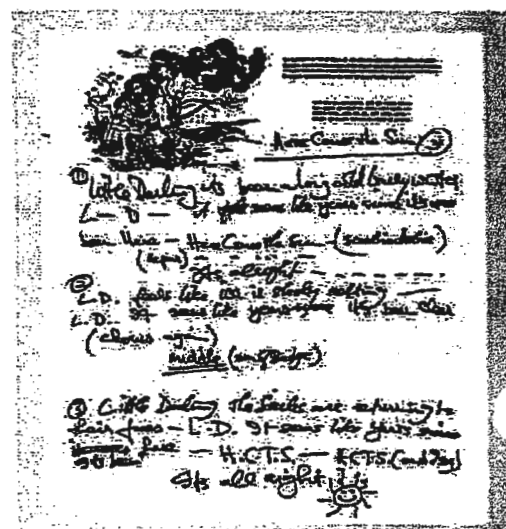 Here Comes the Sun
① Little Darling its been a long cold lonely winter
L — D — it seems like years since its
been Here — Here Comes the Sun —
Its alright —
② L.D. feels like ice is slowly melting —
L.D. It seems like years since its been clear
(chorus again)
middle
③ Little Darling the Smiles are returning to
their faces — L.D. It seems like years since
its been here — H.C.T.S. — H.C.T.S. (and I say)
Its all right